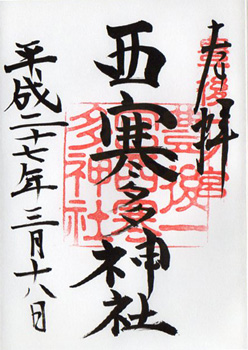 奉拝
豊後一宮
西寒多神社
平成二十七年三月十八日